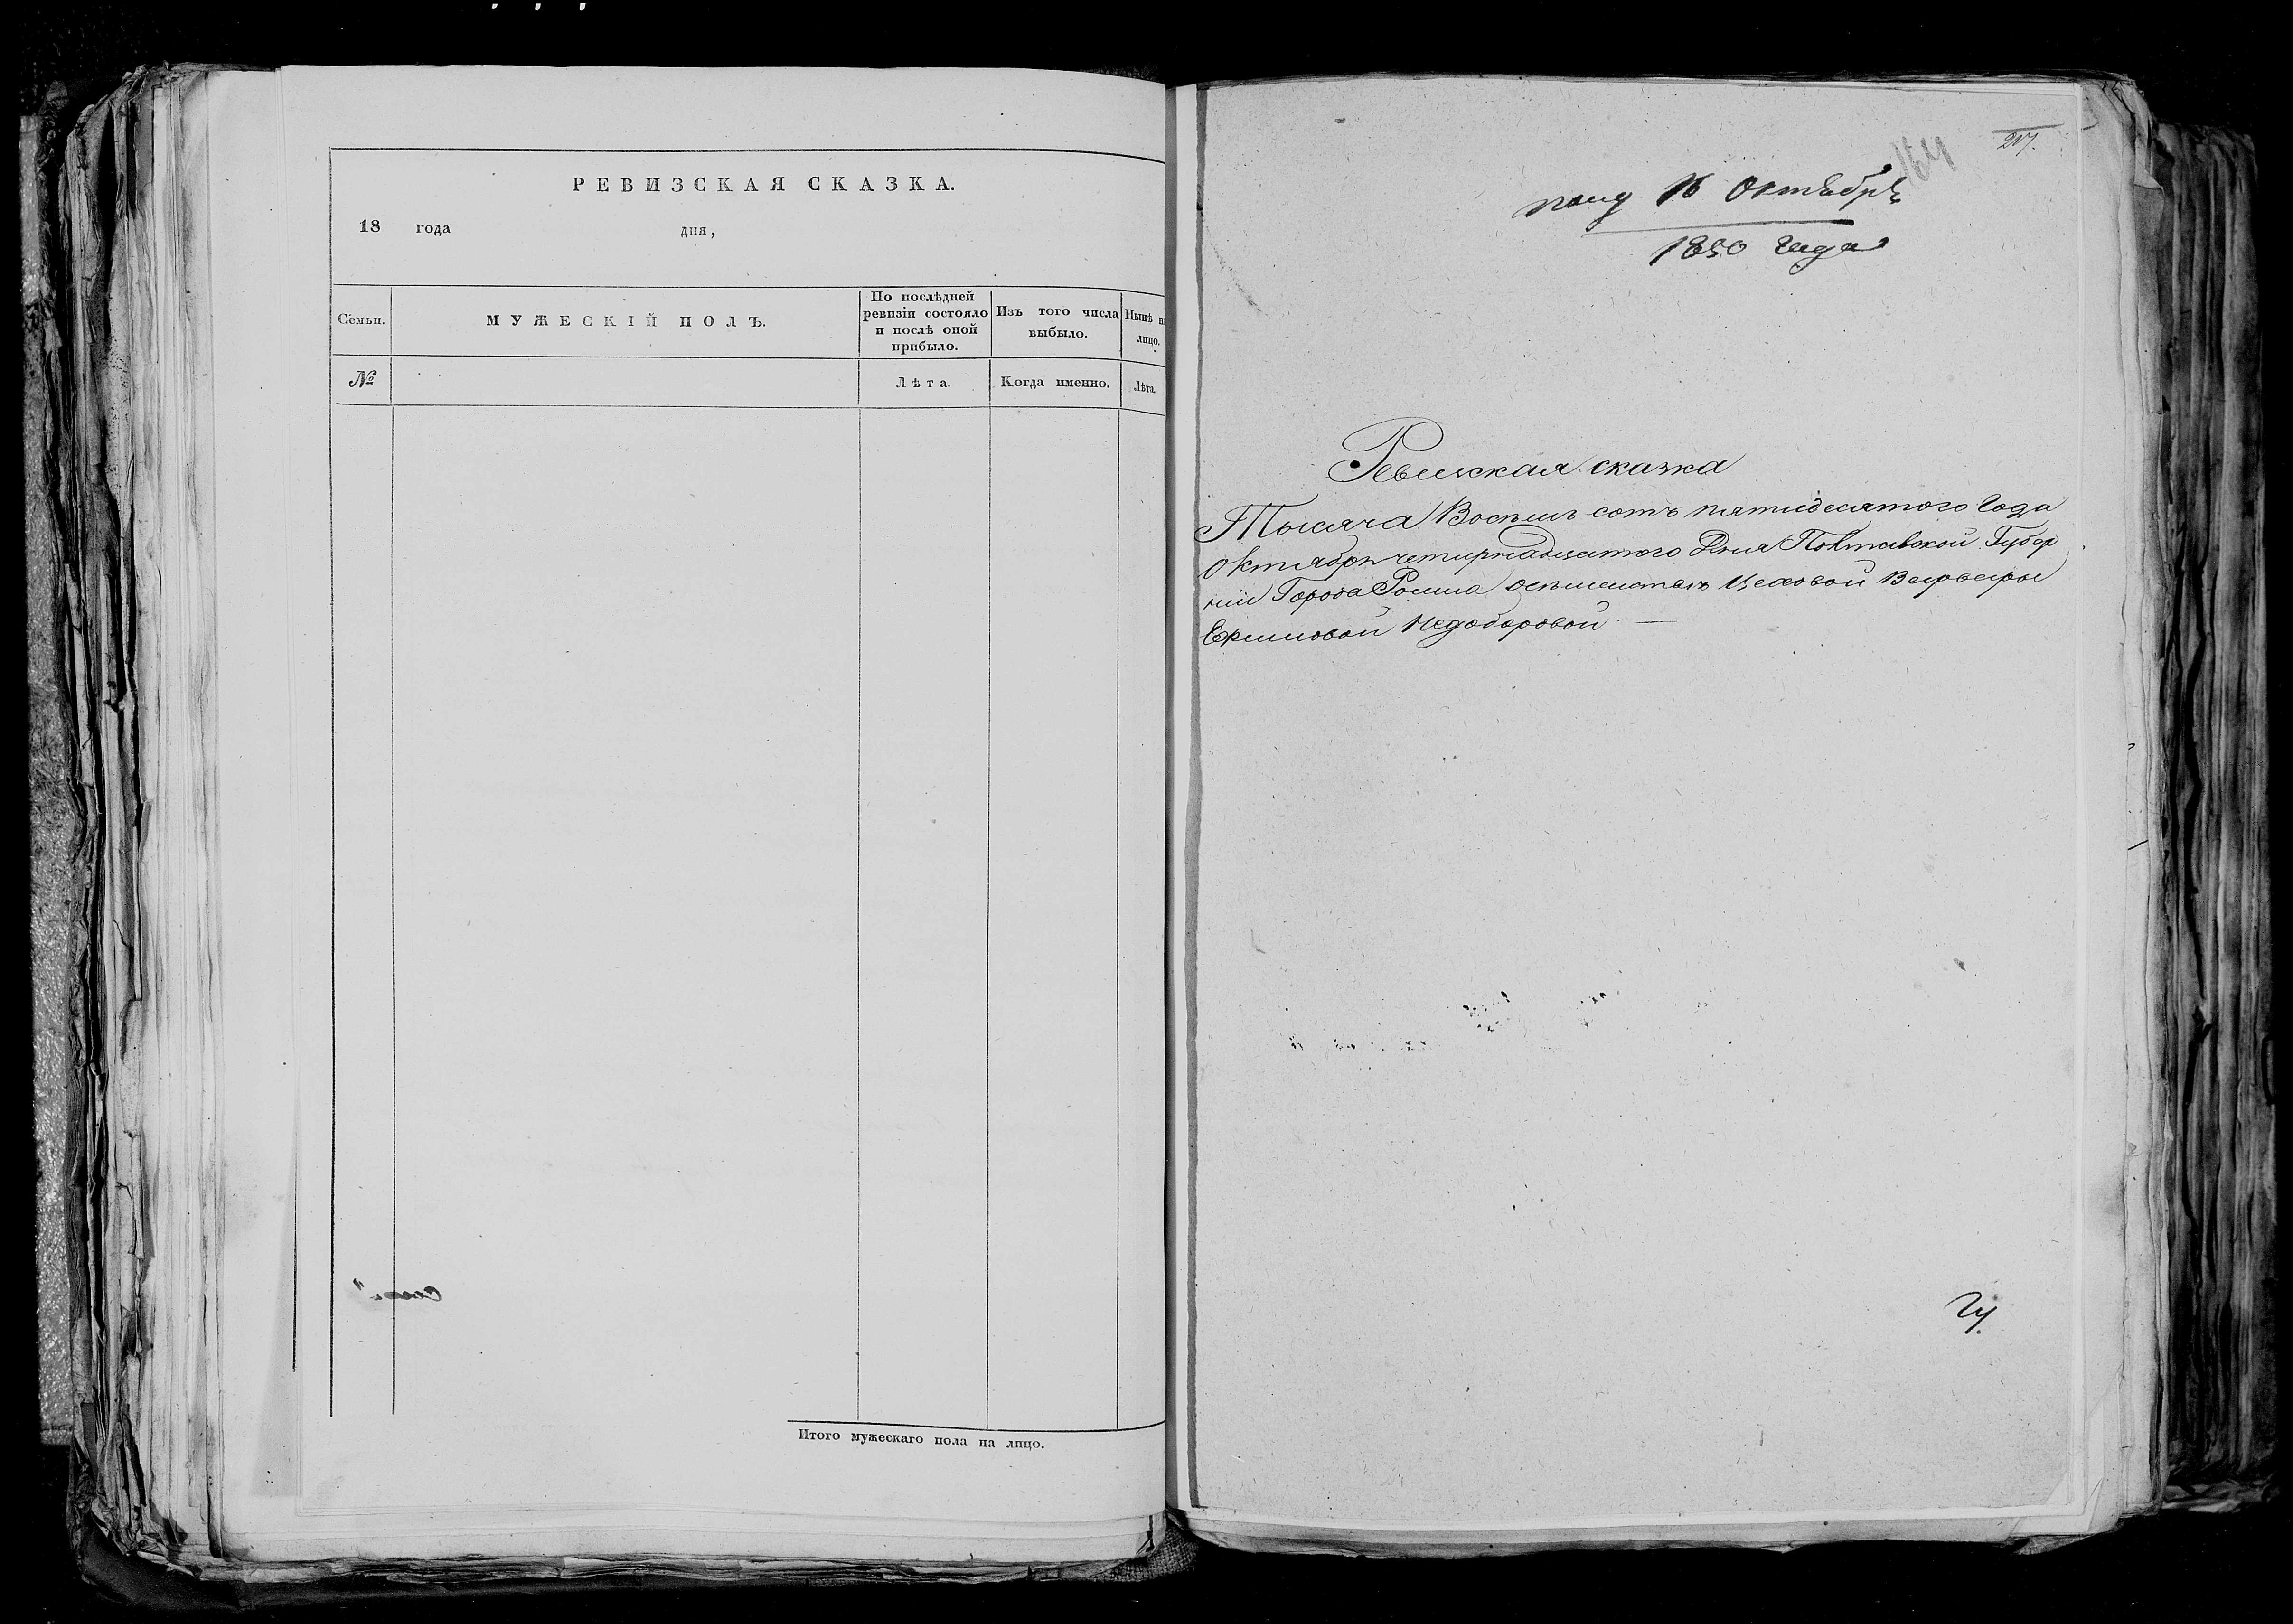 РЕВИЗСКАЯ СКАЗКА.
18 года дня,
Семьи.
МУЖЕСКІЙ ПОЛЪ.
По послѣдней ревизіи состояло и послѣ оной прибыло.
Изъ того числа выбыло.
Нынѣ на лицо.
№
Лѣта.
Когда именно.
Лѣта.
Итого мужескаго пола на лицо.
217.
164
16 Октябрѣ
1850 года
Ревизская сказка
Тысяча Восемь сотъ пятидесятого Года
Октября четирнадцатого Дня Полтавской Губер
ніи Города Ромна Цеховой
Недоборовой